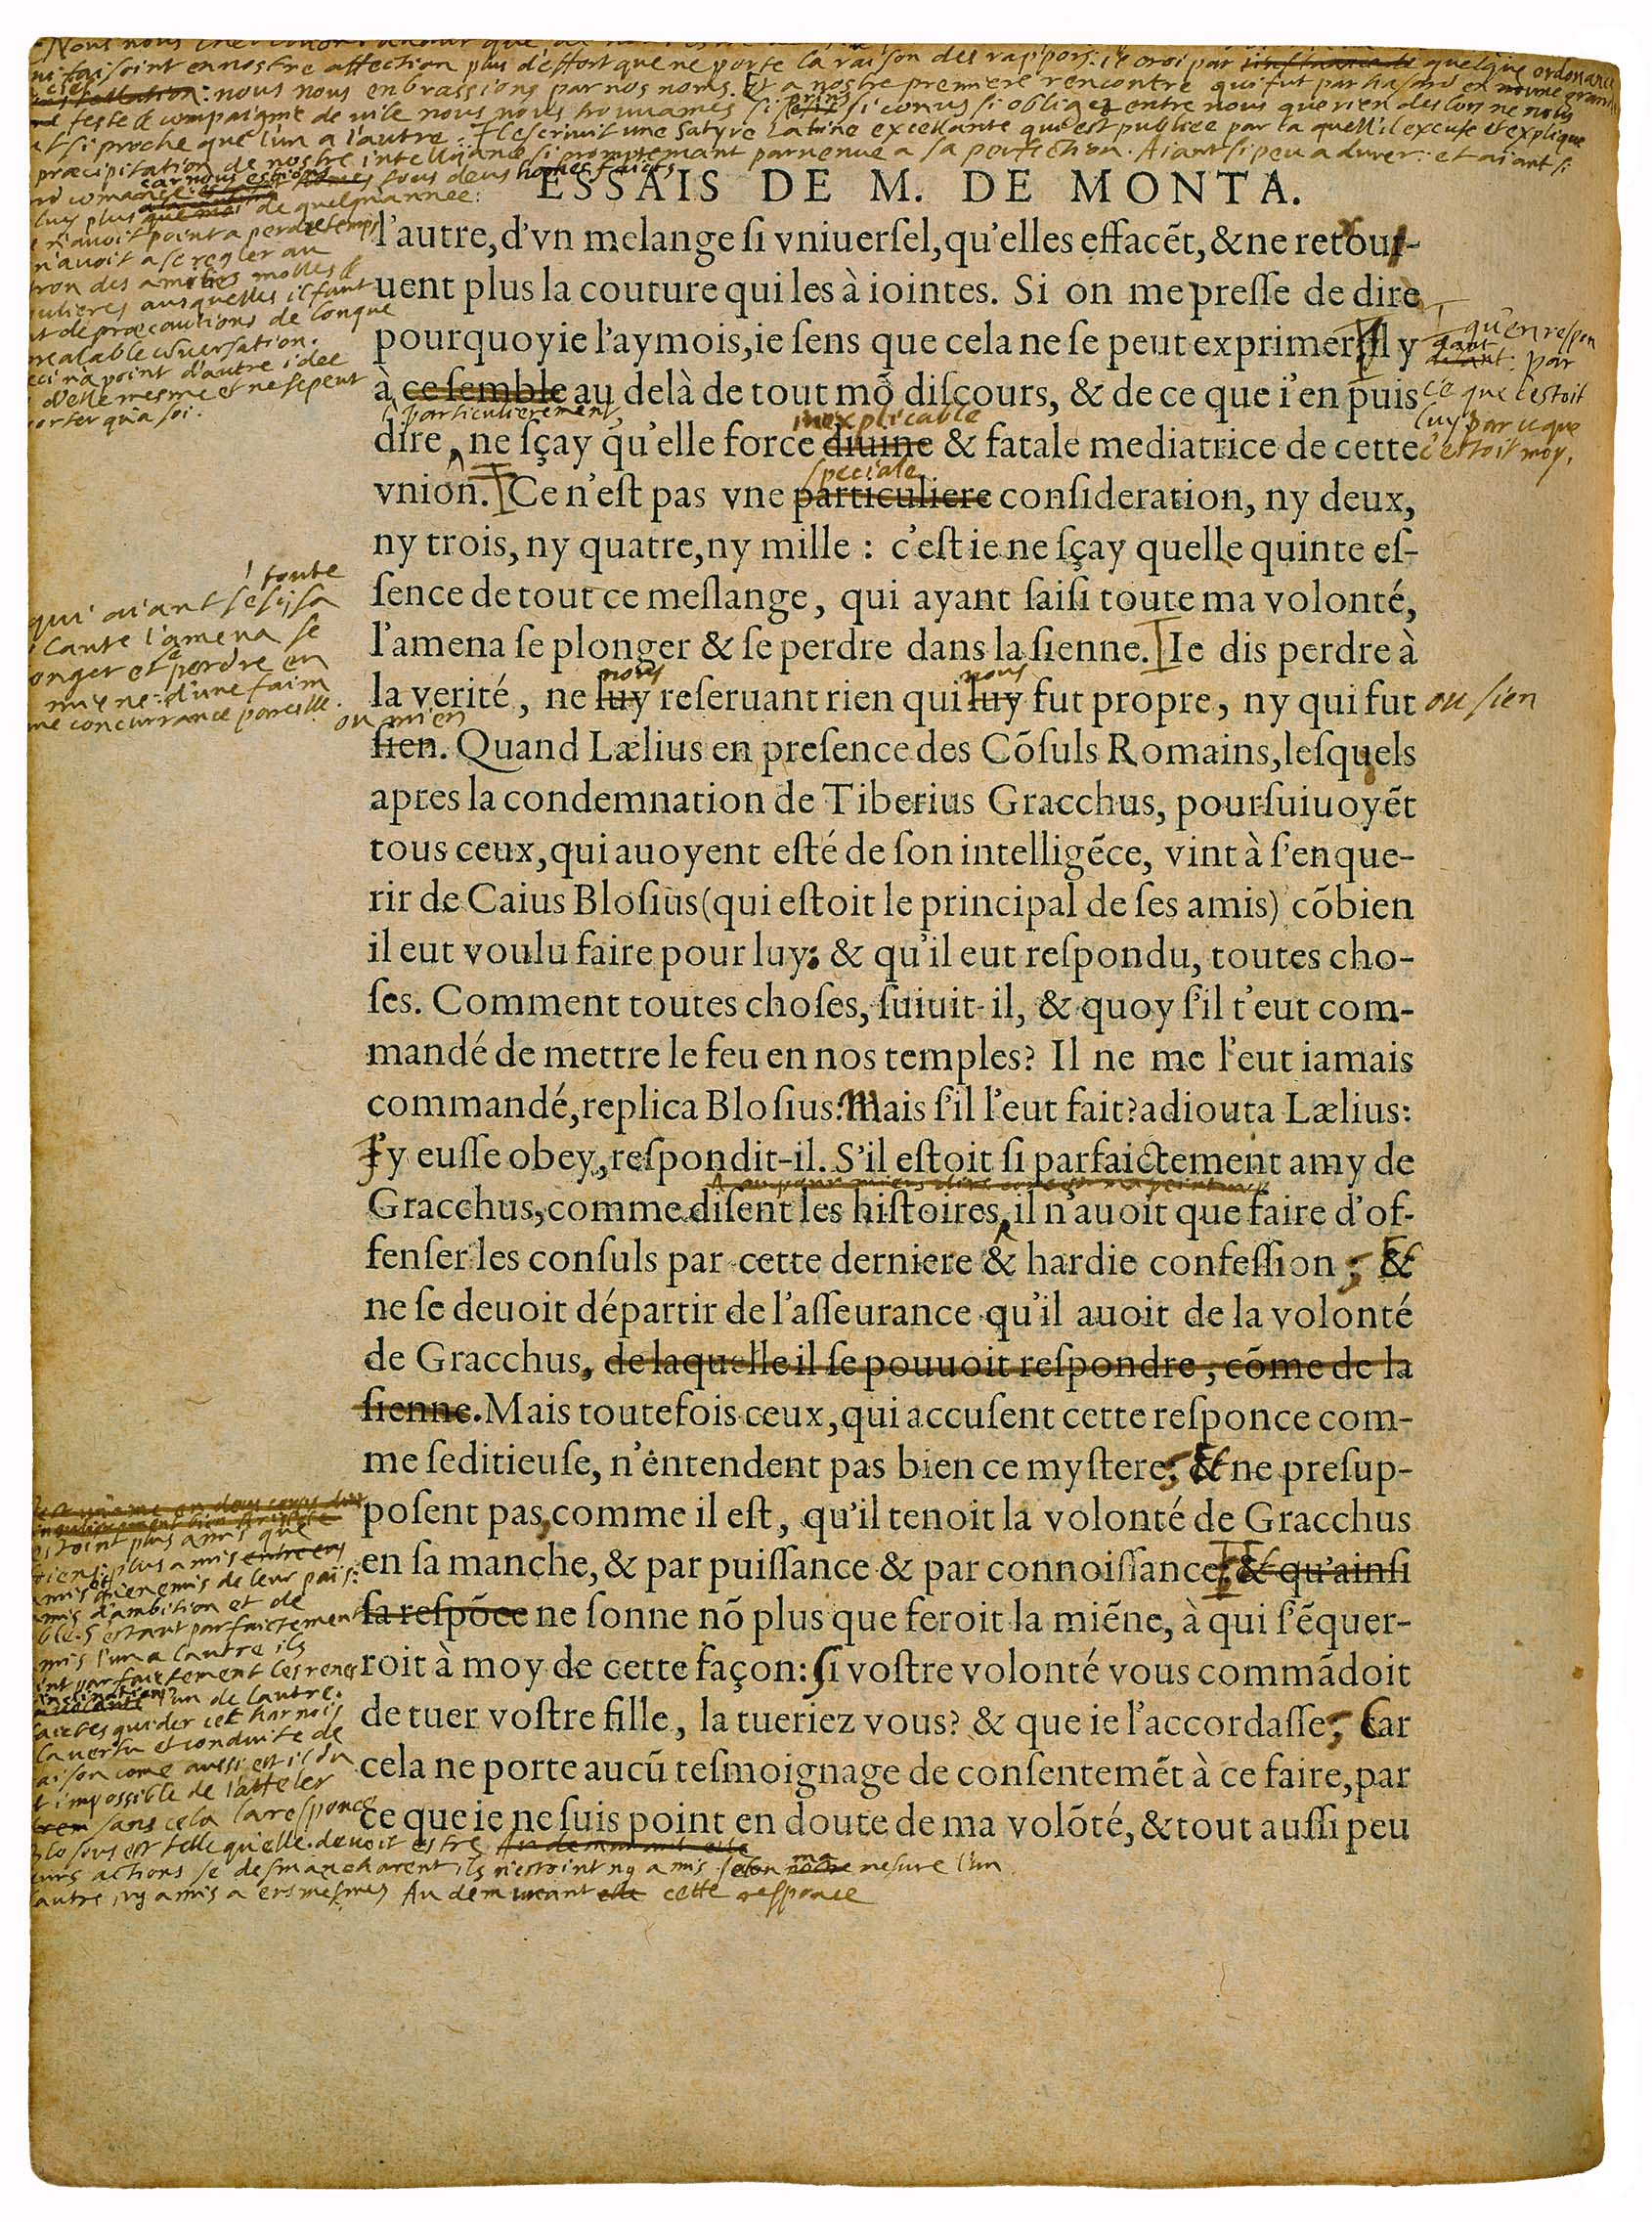 ni faisoint en nostre affection plus d'effort que ne porte la raison des rapports: ie croi par quelque ordonance
nous nous enbrassions par nos noms. Et a nostre premiere rencontre qui fut par hasard en grande
feste & compaignie de vile nous nous trouvames si prins si conus si obligez entre nous que rien des lors ne nous
fut si proche que l'un a l'autre. Il escrivit une Satyre Latine excellante qui est publiee par la quell'il excuse et explique
præcipitation de nostre intelligance si promptemant parvenue a sa perfection. Aiant si peu a durer: et aiant si
car nous estions tous deus homes faicts
luy plus de quelqu'annee:
n'avoit point a perdre temps
n'avoit a se regler au
tron des amities molles &
gulieres ausquelles il faut
nt de præcautions de longue
prealable conversation.
ceci n'a point d'autre idee
d'elle mesme et ne se peut
porter qu'a soi.
ESSAIS DE M. DE MONTA.
l'autre, d'vn melange si vniuersel, qu'elles effacẽt, & ne retou-
uent plus la couture qui les à iointes. Si on me presse de dire
pourquoy ie l'aymois, ie sens que cela ne se peut exprimer Il y
qu'en respon
dant: par
ce que c'estoit
luy par ce que
c'estoit moy.
à ce semble au delà de tout mõ discours, & de ce que i'en puis
particulierement inexplicable
dire, ne sçay qu'elle force diuine & fatale mediatrice de cette
speciale
vnion. Ce n'est pas vne particuliere consideration, ny deux,
ny trois, ny quatre, ny mille : c'est ie ne sçay quelle quinte es-
sence de tout ce meslange, qui ayant saisi toute ma volonté,
l'amena se plonger & se perdre dans la sienne. Ie dis perdre à
toute
qui aiant sesi sa
lante l'amena se
onger et se perdre en
miene: d'une faim
me concurrance pareille.
nous nous
la verité, ne luy reseruant rien qui luy fut propre, ny qui fut
ou sien
ou mien
sien. Quand Lælius en presence des Cõsuls Romains, lesquels
apres la condemnation de Tiberius Gracchus, poursuiuoyẽt
tous ceux, qui auoyent esté de son intelligẽce, vint à s'enque-
rir de Caius Blosius (qui estoit le principal de ses amis) cõbien
il eut voulu faire pour luy: & qu'il eut respondu, toutes cho-
ses. Comment toutes choses, suiuit-il, & quoy s'il t'eut com-
mandé de mettre le feu en nos temples? Il ne me l'eut iamais
commandé, replica Blosius: Mais s'il l'eut fait? adiouta Lælius:
J'y eusse obey, respondit-il. S'il estoit si parfaictement amy de
Gracchus, comme disent les histoires, il n'auoit que faire d'of-
fenser les consuls par cette derniere & hardie confession; &
ne se deuoit départir de l'asseurance qu'il auoit de la volonté
de Gracchus, de laquelle il se pouuoit respondre, cõme de la
sienne. Mais toutefois ceux, qui accusent cette responce com-
me seditieuse, n'entendent pas bien ce mystere: & ne presup-
posent pas, comme il est, qu'il tenoit la volonté de Gracchus
en sa manche, & par puissance & par connoissance: & qu'ainsi
sa respõce ne sonne nõ plus que feroit la miẽne, à qui s'ẽquer-
roit à moy de cette façon: si vostre volonté vous commãdoit
de tuer vostre fille, la tueriez vous? & que ie l'accordasse; Car
cela ne porte aucũ tesmoignage de consentemẽt à ce faire, par
ce que ie ne suis point en doute de ma volõté, & tout aussi peu
estoint plus amis que
toiens plus amis
amis ou enemis de leur païs:
amis d'ambition et de
ble. S'estant parfaictement
mis l'un a l'autre ils
int parfaictement les renes
inclination l'un de l'autre.
faictes guider cet harnois
la vertu et conduite de
aison come aussi est il du
t impossible de l'atteler
sans cela la responce
Blosius est telle qu'elle devoit estre.
urs actions se desmancharent ils n'estoint ny amis selon ma mesure l'un
autre, ny amis a eux mesmes Au demurant cette responce